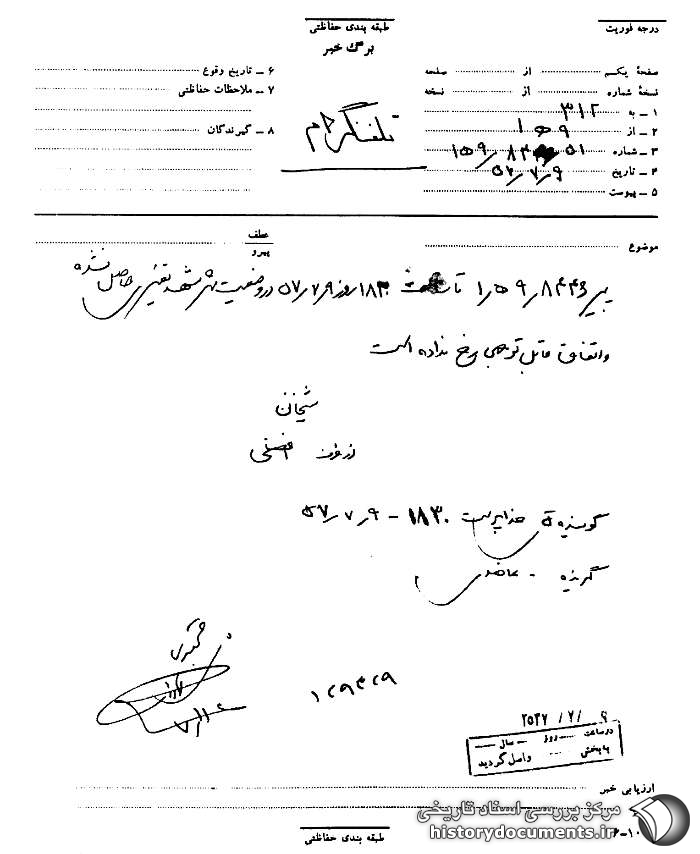 طبقه بندی حفاظتی
درجه فوریت
برگ خبر
صفحهٔ یکم از صفحه
نسخهٔ شماره از نسخه
۱ – به ۳۱۲
۲ – از ۱ ه ۹
۳ – شماره
۴ – تاریخ ۵۷/۷/۹
۵ – پیوست
تلفنگرام
۶ – تاریخ وقوع
۷ – ملاحظات حفاظتی
۸ – گیرندگان
موضوع
عطف
پیرو
پیرو ۱ ه ۹/۸۴۴۶ تا ساعت ۱۸۳۰ روز ۵۷/۷/۹ در وضعیت شهر مشهد تغییری حاصل نشده
و اتفاق قابل توجهی رخ نداده است
شیخان
از طرف
گوینده خداپرست ۱۸۳۰ – ۵۷/۷/۹
گیرنده –
۱۲۹۳۲۹
۲۵۳۷/۷/۹
در ساعت روز سال
بابخش واصل گردید
ارزیابی خبر
طبقه بندی حفاظتی
۶-۱۰
مرکز بررسی اسناد تاریخی
historydocuments.ir